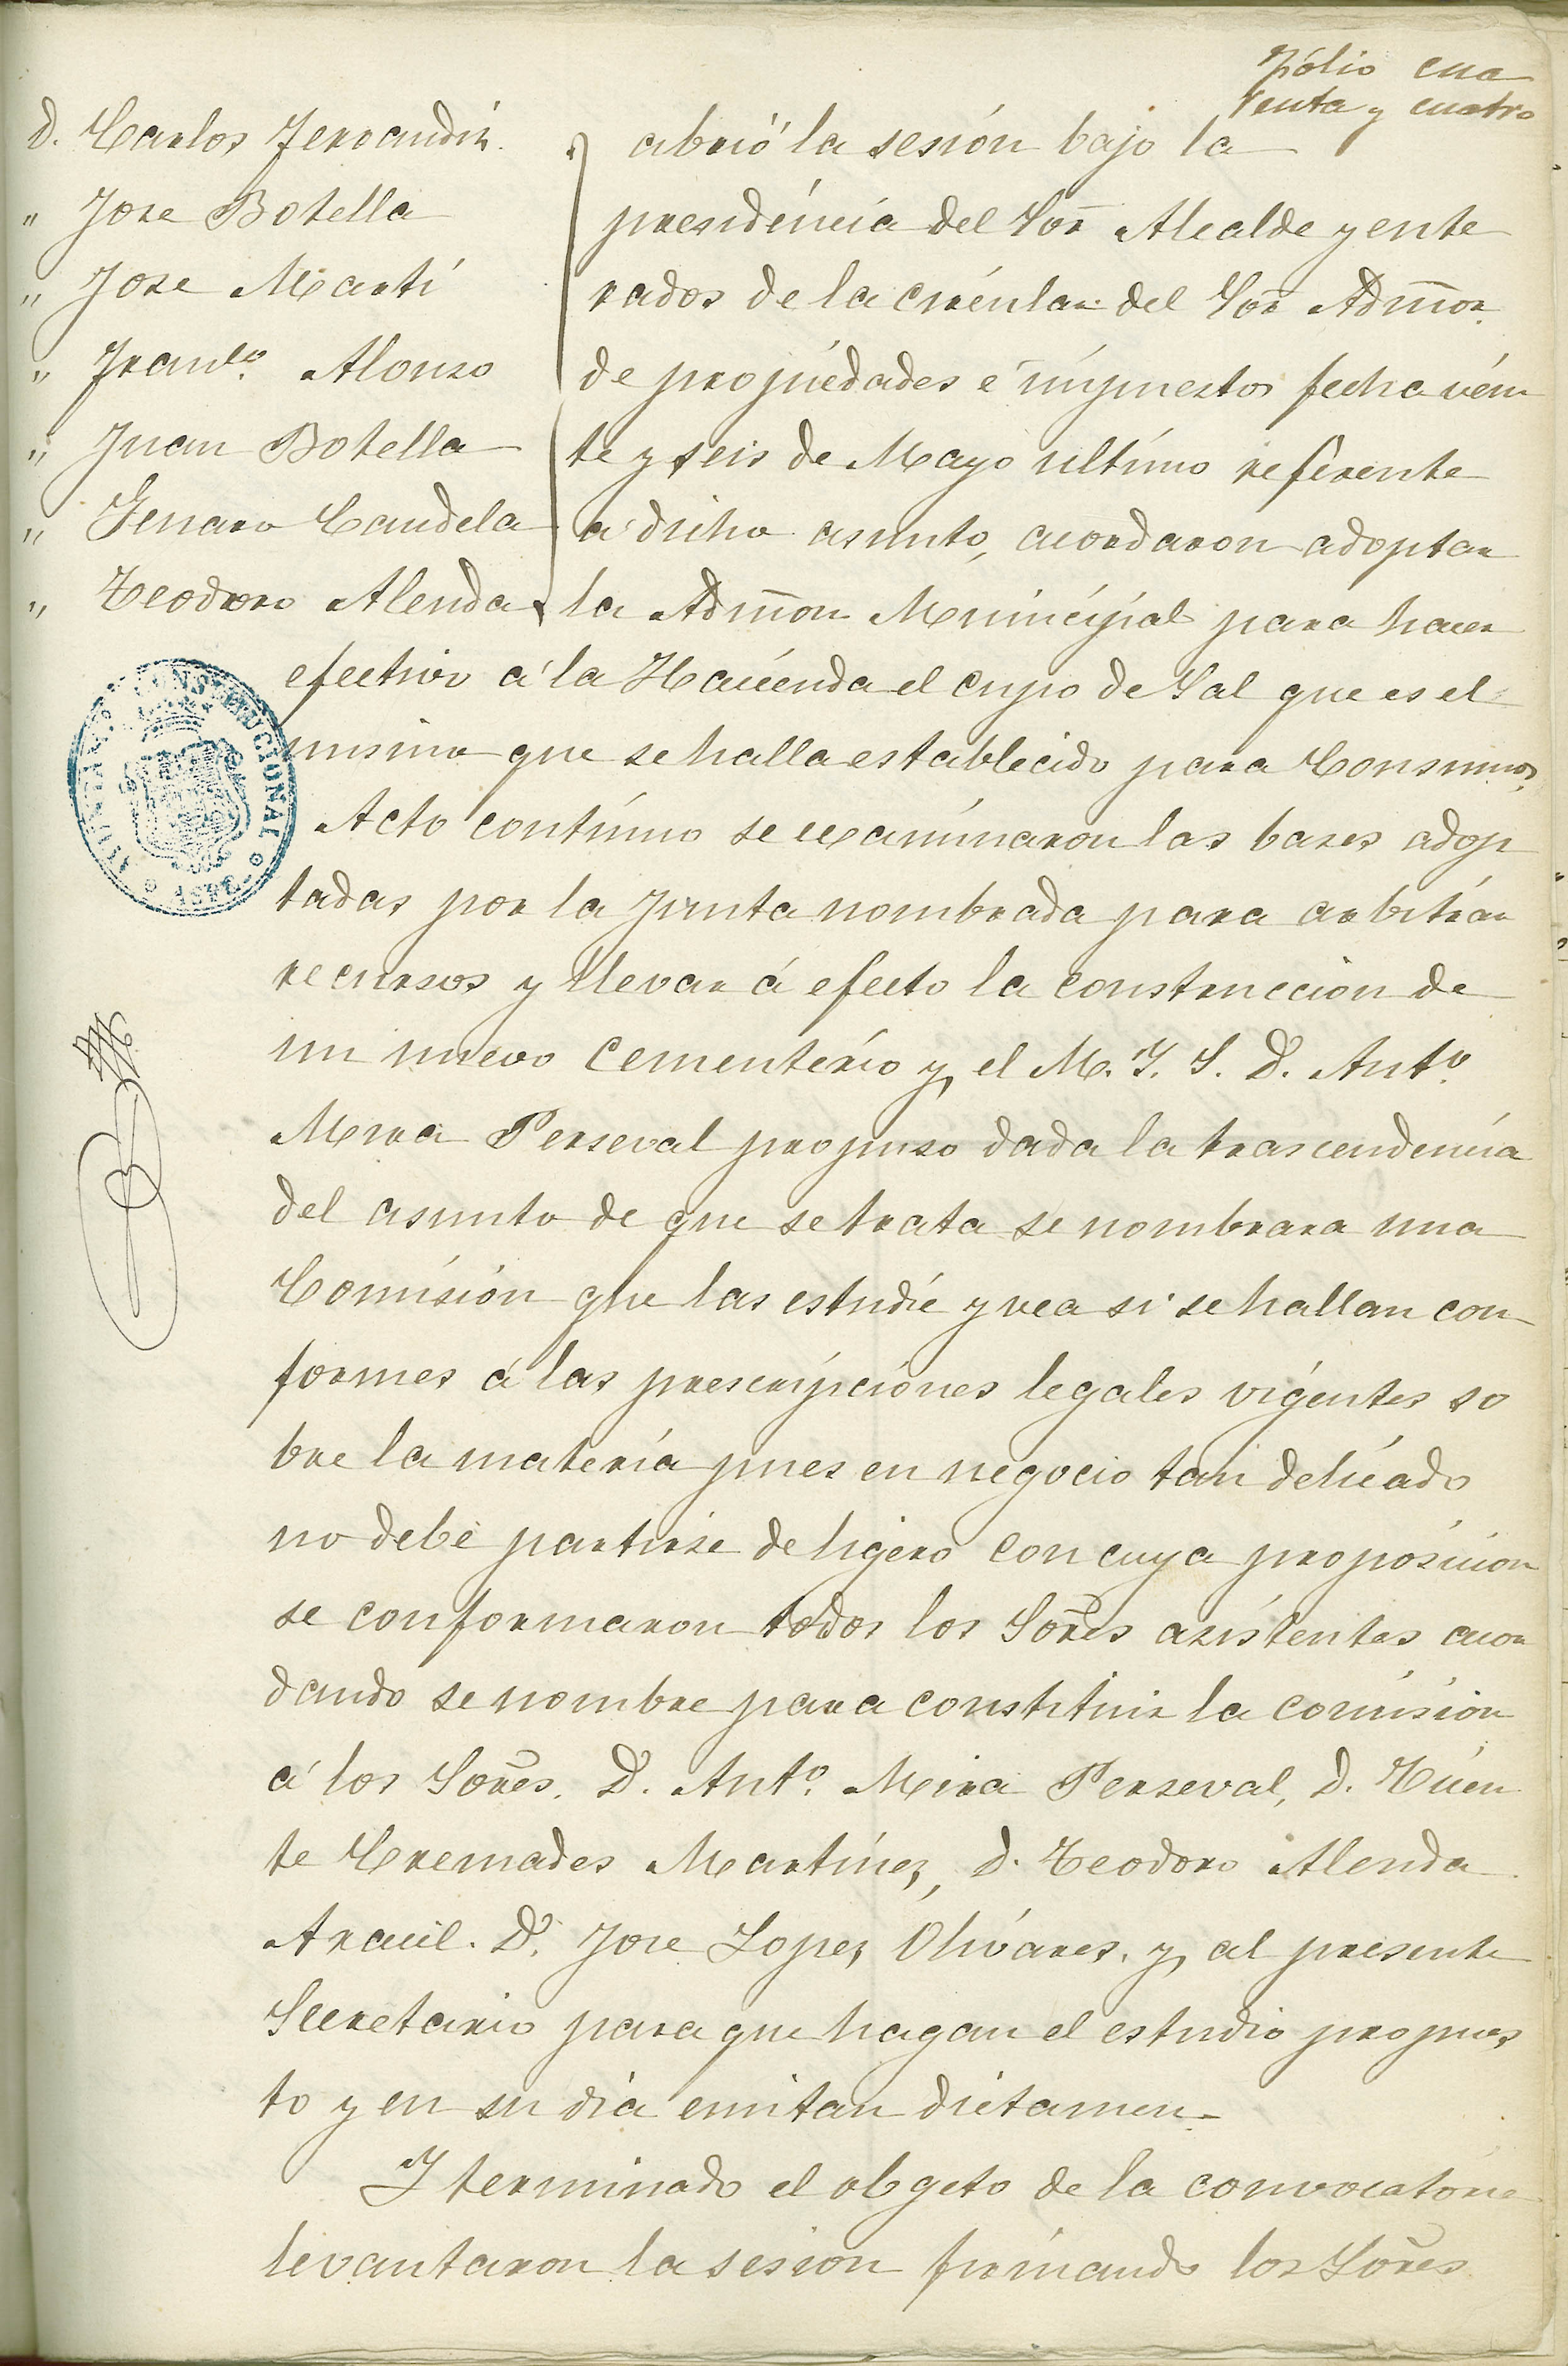 Fólio cua
renta y cuatro
D. Carlos Ferrandiz.
" Jose Botella
" Jose Martí
" Franco. Alonso
" Juan Botella
" Genaro Candela
" Teodoro Alenda
abrió la sesión bajo la
presidéncia del Sor Alcalde y ente
rados de la circular del Sor Admor.
de propiedades é impuestos fecha véin
te y seis de Mayo último referente
á dicho asunto, acordaron adoptar
la Admon Municipal para hacer
efectivo á la Hacienda el cupo de Sal que es el
mismo que se halla establecido para Consumos.
Acto contínuo se ecsaminaron las bases adop
tadas por la Junta nombrada para arbitrar
recursos y llevar á efecto la construccion de
un nuevo cementerio y el M. Y. S. D. Anto.
Mira Perseval propuso dada la trascendencia
del asunto de que se trata se nombrara una
Comisión que las estudie y vea si se hallan con
formes á las prescripciones legales vigentes so
bre la materia pues en negocio tan delicado
no debe partirse de ligero con cuya proposicion
se conformaron todos los Sores asistentes acor
dando se nombre para constituir la comision
á los Sores. D. Anto. Mira Perseval, D. Vicen
te Cremades Martínez, D. Teodoro Alenda
Aracil. D. Jose Lopez Olivares. y al presente
Secretario para que hagan el estudio propues
to y en su dia emitan dictamen.
Y terminado el obgeto de la convocatoria
levantaron la sesion firmando los Sores
AYUNTAMIENTO CONSTITUCIONAL
ASPE